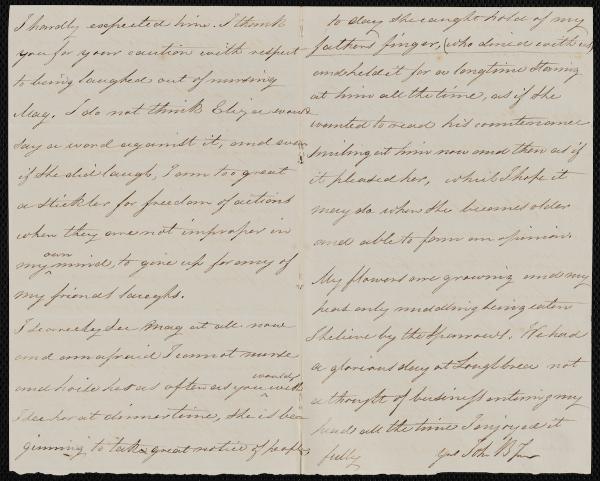 I hardly expected him. I thank
you for your caution with respect
to being laughed out of nursing
Mag. I do not think Eliza would
say a word against it, and even
if she did laugh, I am too great
a stickler for freedom of actions
when they are not improper in
my own mind, to give up for any of
my friends laughs.
I scarcely see Mag at all now
and am afraid I cannot nurse
and hoise her as often as you would wish
I see her at dinner time, she is be
ginning to take great notice of people
to day she caught hold of my
fathers finger, (who dined with us)
and held it for a longtime staring
at him all the time, as if she
wanted to read his countenance
smiling at him now and then as if
it pleased her, which I hope it
may do when she becomes older
and able to form an opinion.
My flowers are growing and my
peas only middling being eaten
I believe by the sparrows. We had
a glorious day at Loughbrea not
a thought of business entering my
head all the time I enjoyed it
fully
John B